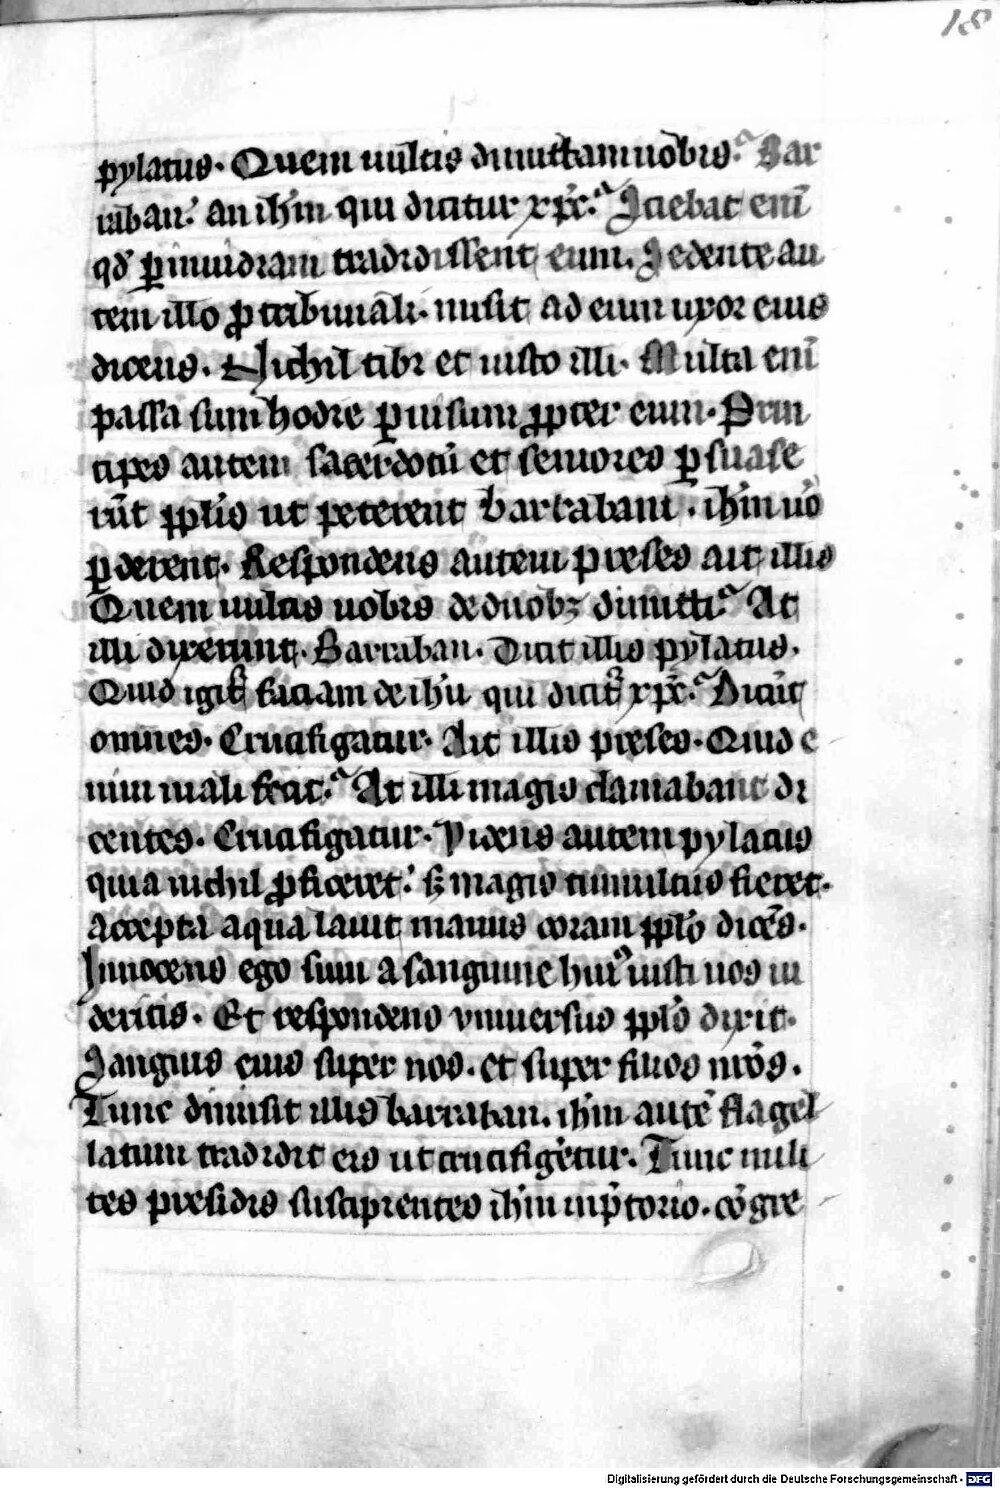 18
pylatus. Quem uultis dimittam uobis? Bar
raban: an ih̄m qui dicitur xp̄c? Sciebat enī
qd̄ ꝑ inuidiam tradidissent eum. Sedente au
tem illo ꝓ tribunali. misit ad eum uxor eius
dicens. Nichil tibi et iusto illi. Multa enī
passa sum hodie ꝑ uisum ꝓpter eum. Prin
cipes autem sacerdotū et seniores ꝑsuase
rūt pp̄lis ut peterent barraban. ih̄m uo
ꝑderent. Respondens autem preses ait illis
Quem uultis uobis de duobꝫ dimitti? At
illi dixerunt. Barraban. Dicit illis pylatus.
Quid igit᷑ faciam de ih̄u qui dicit᷑ xp̄c? Dicūt
omnes. Crucifigatur. Ait illis preses. Quid e
nim mali fecit? At illi magis clamabant di
centes. Crucifigatur. Videns autem pylatus
quia nichil ꝓficeret: s; magis tumultus fieret.
accepta aqua lauit manus coram pp̄lo dicēs.
Innocens ego sum a sanguine huiꝰ iusti uos ui
deritis. Et respondens vniuersus pp̄ls dixit.
Sanguis eius super nos. et super filios nr̄os.
Tunc dimisit illis barraban. ih̄m autē flagel
latum tradidit eis ut crucifigetur. Tunc mili
tes presidis suscipientes ih̄m in p̄torio. cōgre
Digitalisierung gefördert durch die Deutsche Forschungsgemeinschaft - DFG